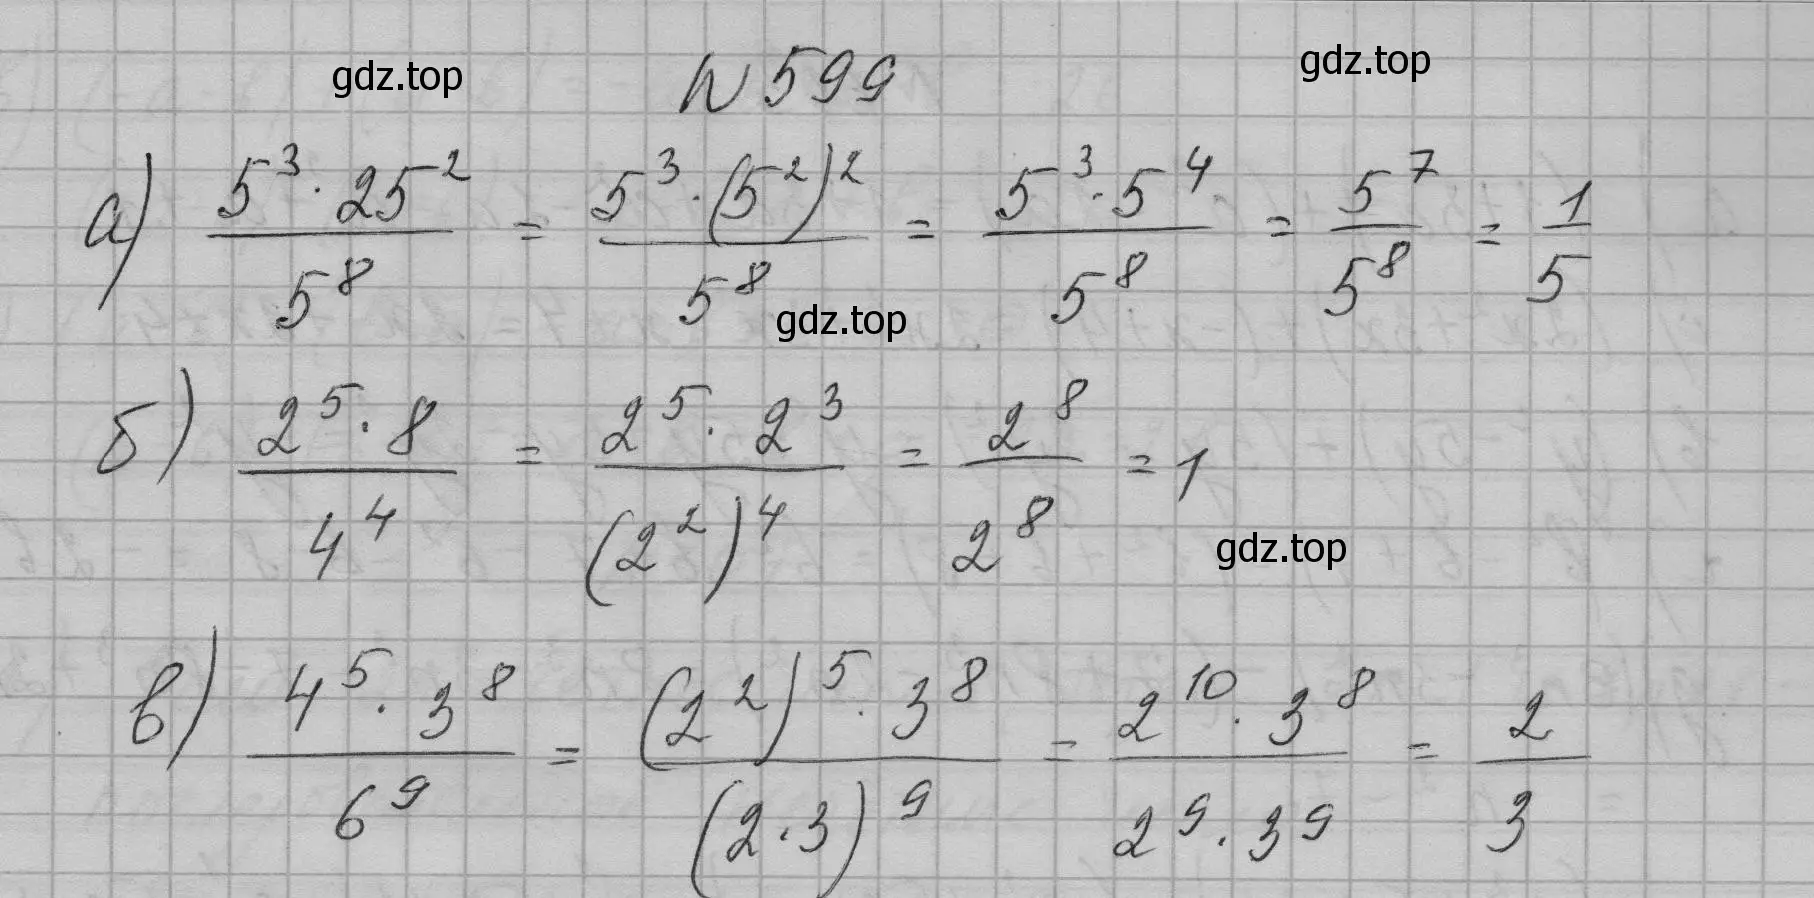 gdz.top
N 599
gdz.top
а) 5³ · 25² / 5⁸ = 5³ · (5²)² / 5⁸ = 5³ · 5⁴ / 5⁸ = 5⁷ / 5⁸ = 1 / 5
gdz.top
б) 2⁵ · 8 / 4⁴ = 2⁵ · 2³ / (2²)⁴ = 2⁸ / 2⁸ = 1
gdz.top
в) 4⁵ · 3⁸ / 6⁹ = (2²)⁵ · 3⁸ / (2 · 3)⁹ = 2¹⁰ · 3⁸ / 2⁹ · 3⁹ = 2 / 3